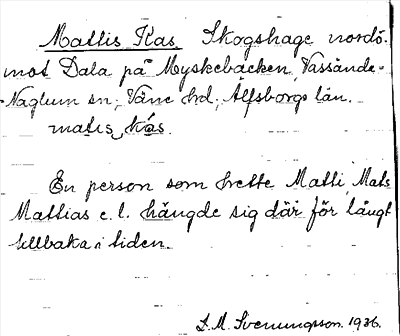 Mattis Kas. Skogshage nordö.
mot Dala på Myskebacken, Vassände-
-Naglum sn; Väne hd; Älfsborgs län.
matis kás.
En person som hette Matti, Mats
Mattias e. l. hängde sig där för långt
tillbaka i tiden.
L. M. Svenungsson. 1936.